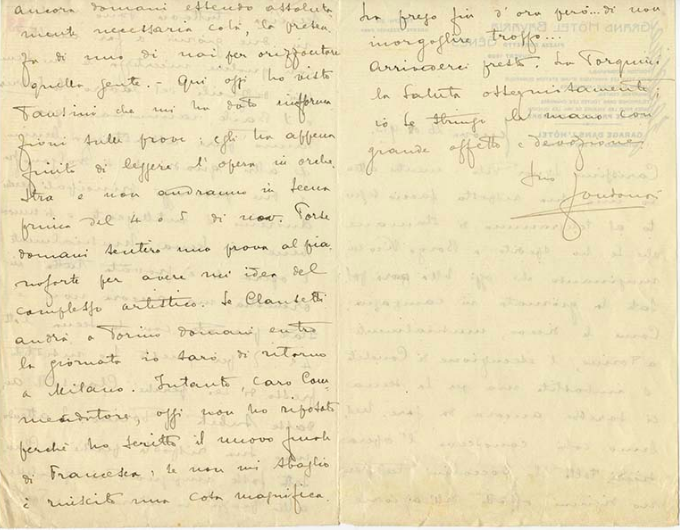 ancora domani essendo assoluta
mente necessaria colà, la presen
za di uno di noi per orizzontare
quella gente. - Qui oggi ho visto
Fantini che mi ha dato informa
zioni sulle prove: egli ha appena
finito di leggere l'opera in orche
stra e non andranno in scena
prima del 4 o 5 di nov. Forse
domani sentirò una prova al pia
noforte per avere un'idea del
complesso artistico. Se Clausetti
andrà a Torino domani entro
la giornata io sarò di ritorno
a Milano. Intanto, caro Com
mendatore, oggi non ho riposato
perchè ho scritto il nuovo finale
di Francesca; se non mi sbaglio
è riuscita una cosa magnifica.
La prego fin d'ora però... di non
troppo...
Arrivederci presto. La Tarquini
la saluta
io Le stringo la mano con
grande affetto e devozione
Suo
Zandonai
GRAND HOTEL BAVARIA